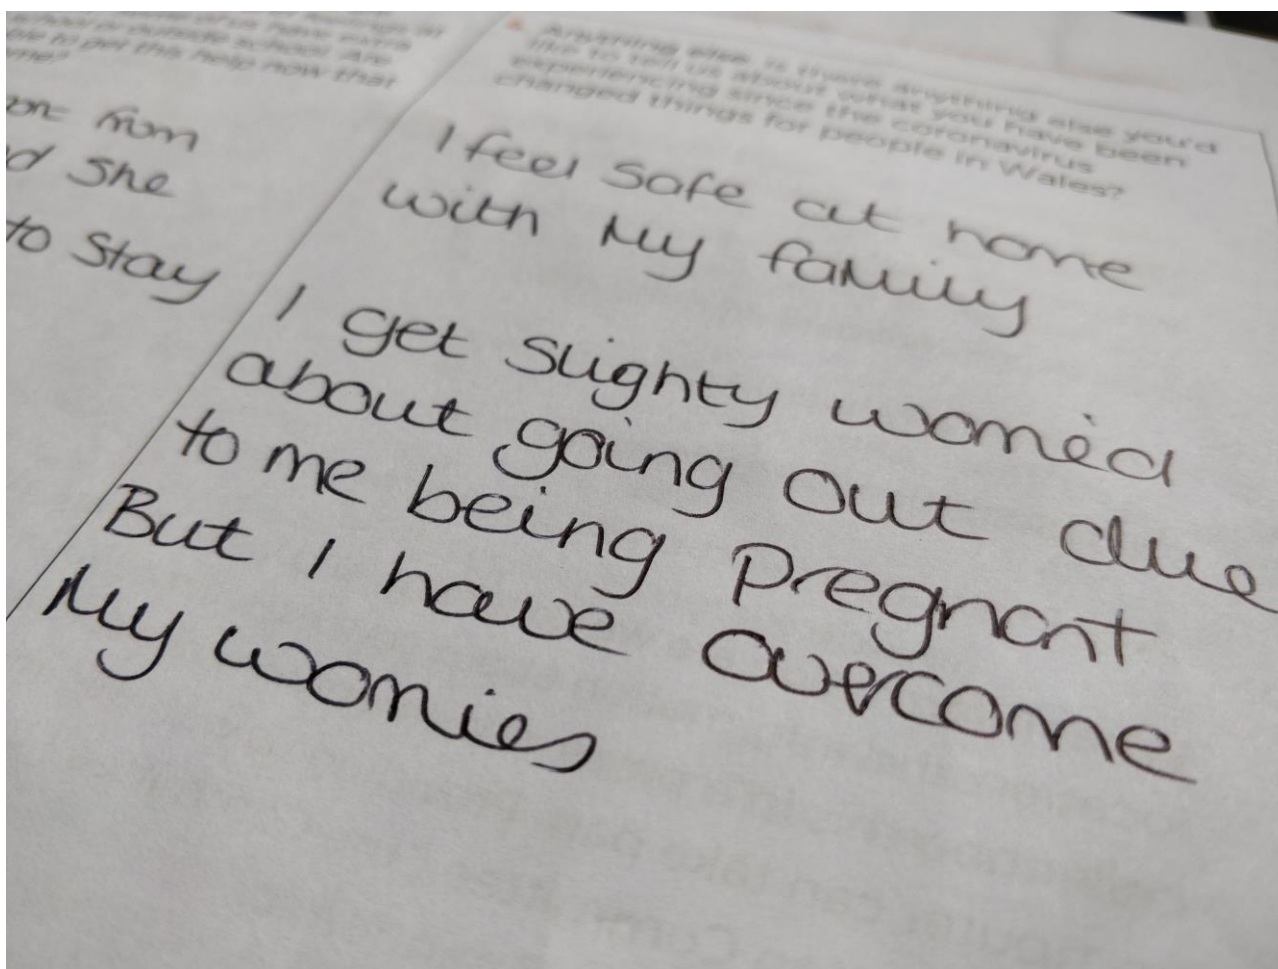 school or outside school. Are
able to get this help now that
from
She
to Stay
Anything else. Is there anything else you'd
like to tell us about what you have been
experiencing since the coronavirus
changed things for people in Wales?
I feel safe at home
with My family
I get slighty worried
about going out due
to me being Pregnant
But I have overcome
My worries